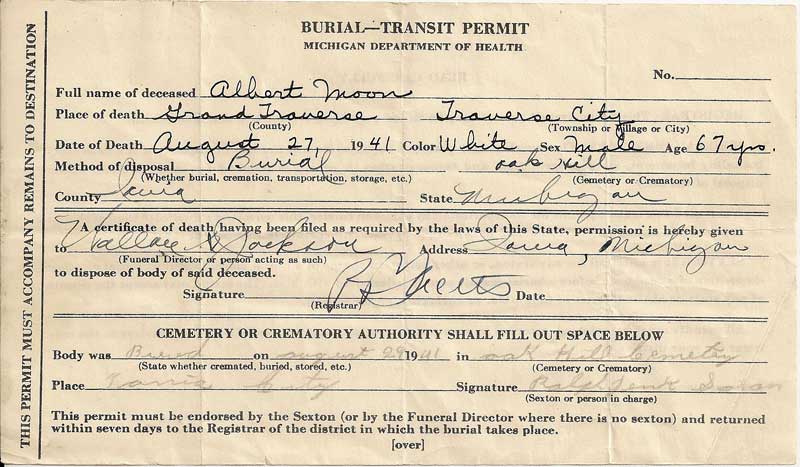 THIS PERMIT MUST ACCOMPANY REMAINS TO DESTINATION
BURIAL—TRANSIT PERMIT
MICHIGAN DEPARTMENT OF HEALTH
No.
Full name of deceased Albert Moon
Place of death Grand Traverse Traverse City
(County) (Township or Village or City)
Date of Death August 27, 1941 Color White Sex Male Age 67 yrs.
Method of disposal Burial oak Hill
(Whether burial, cremation, transportation, storage, etc.) (Cemetery or Crematory)
County Ionia State Michigan
A certificate of death having been filed as required by the laws of this State, permission is hereby given
to Wallace Jackson Address Ionia, Michigan
(Funeral Director or person acting as such)
to dispose of body of said deceased.
Signature Date
(Registrar)
CEMETERY OR CREMATORY AUTHORITY SHALL FILL OUT SPACE BELOW
Body was Buried on august 29 1941 in oak Hill Cemetery
(State whether cremated, buried, stored, etc.) (Cemetery or Crematory)
Place Ionia City Signature Ralph
(Sexton or person in charge)
This permit must be endorsed by the Sexton (or by the Funeral Director where there is no sexton) and returned
within seven days to the Registrar of the district in which the burial takes place.
[over]